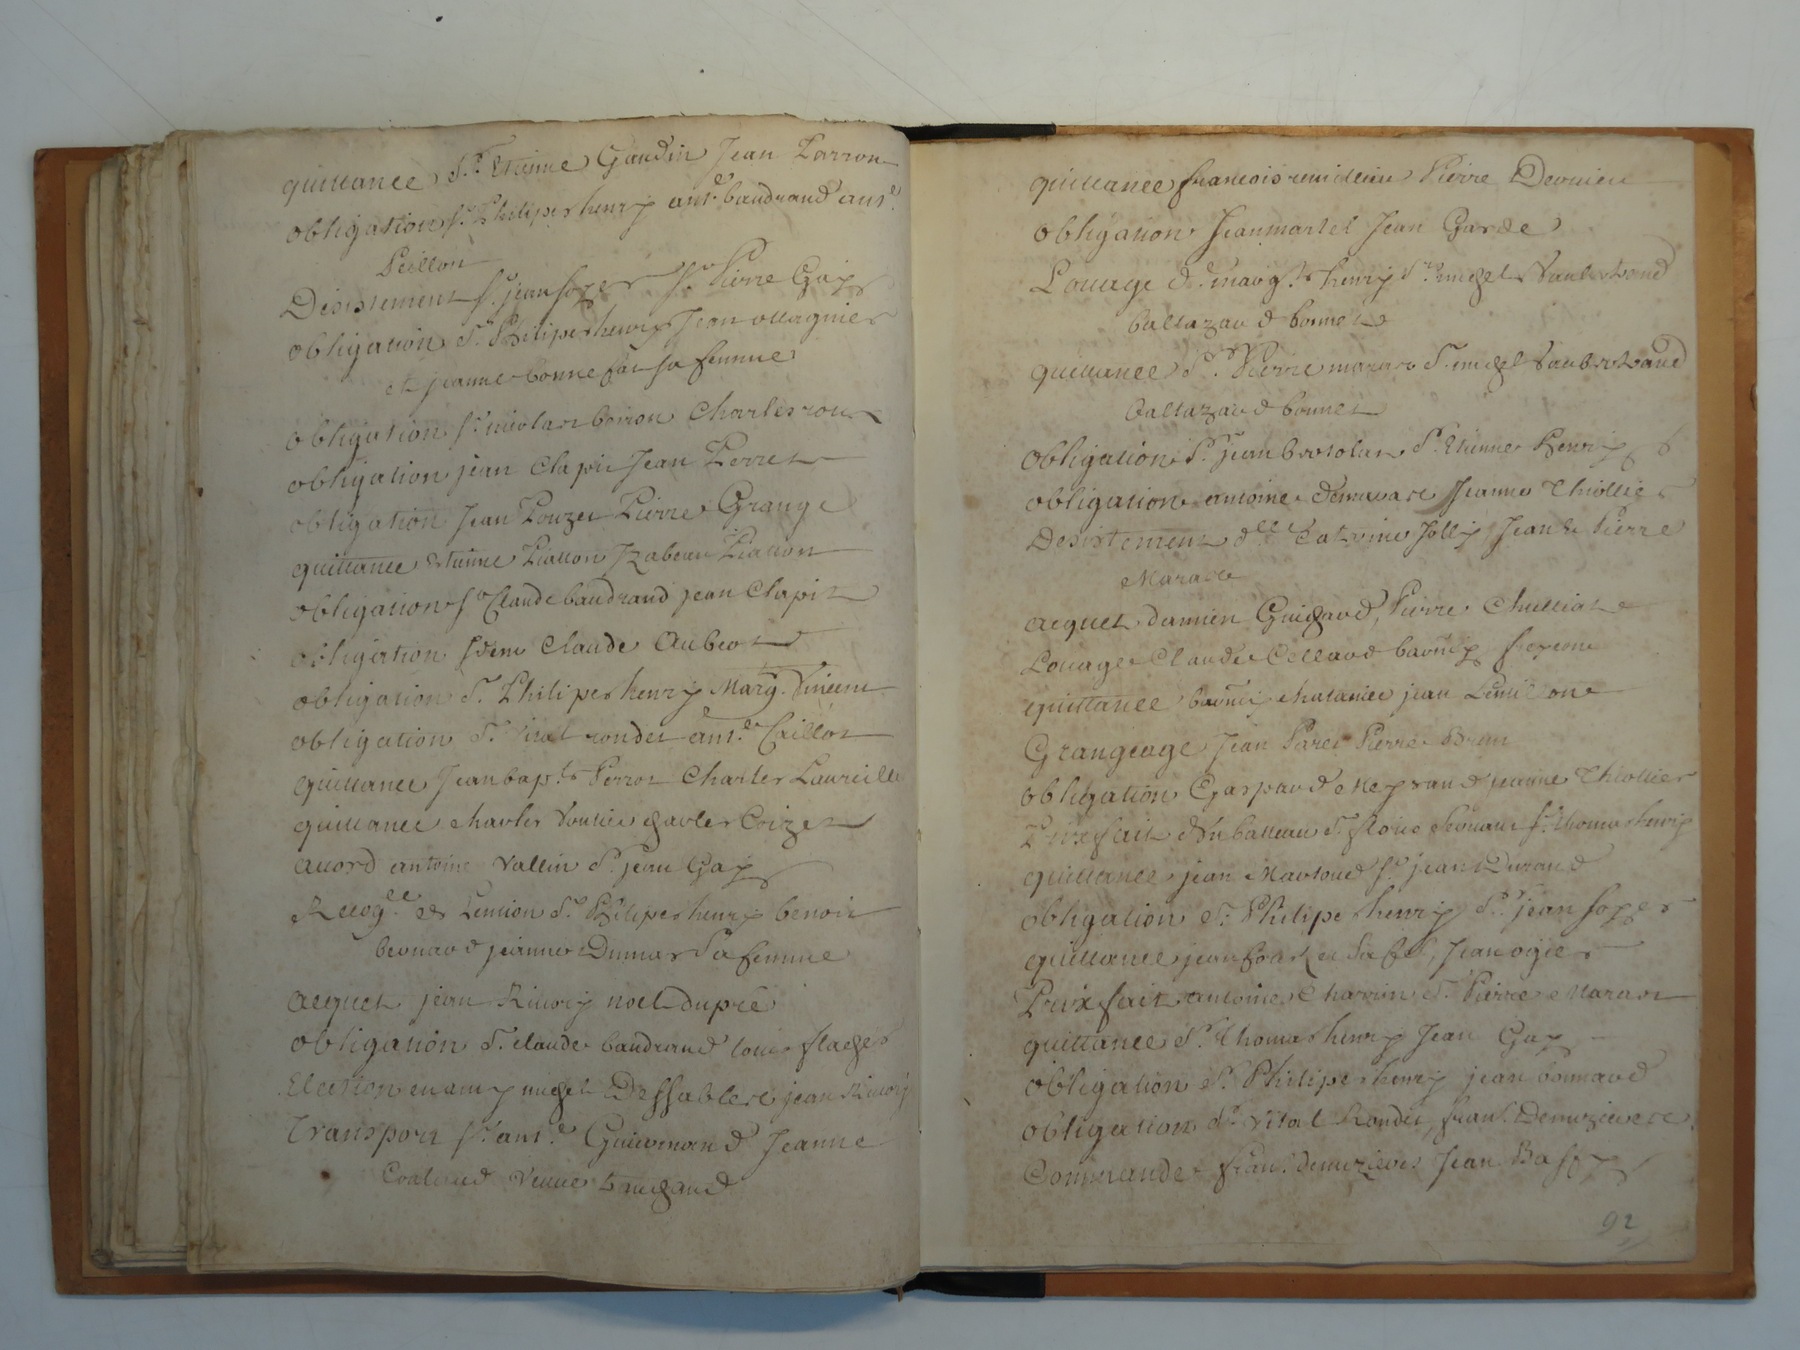 quittance Sr. Etienne Gaudin Jean Parron
obligation Sr. Philipes henry ant.e baudrand ant.e
Peillon
Desistement Sr. jean foyer Sr. Pierre Gay
obligation Sr. Philipes henry Jean ollagnier
et jeanne bonnefat sa femme
obligation Sr. nicolas boiron Charles roux
obligation jean Clapit Jean Perret
obligation Jean Pouzet Pierre Grange
quittance Etienne Piatton Izabeau Piatton
obligation Sr. Claude baudrand jean Clapit
obligation Idem Claude Aubeot
obligation Sr. Philipes henry Marg. Vincent
obligation Sr. Vital rondet ant.e Caillot
quittance Jean bap.te Perrot Charles Laureille
quittance charles charles Coizet
accord antoine Vallin Sr. jean Gay
Recog.ce de Pention Sr. Philipes henry benoit
bernard jeanne Dumas Sa femme
acquet jean Rivory noel dupré
obligation Sr. claude baudrand louis flachet
Election en amy michel Deffables jean Rivory
Transport Sr. ant.e Guicomand Jeanne
Veuve
quittance francois Pierre Dervieu
obligation Jean martel Jean Garde
Louage d. marg.te henry Sr. michel Vaubertrand
baltazard bonnet
quittance Sr. Pierre maras Sr. michel Vaubertrand
baltazard bonnet
obligation Sr. jean bertolas Sr. Etienne henry
obligation antoine demarare Jeanne Thiollier
Desistement d.lle Catrine Jolly Jean & Pierre
Maras
acquet damien Guichard, Pierre Chulliat
Louage Claude Collard barmy
quittance jean
Grangeage Jean Paret Pierre Brun
obligation Gaspard Meyrand jeanne Thiollier
Prixfait d'Un batteau Sr. Sr. Thomas henry
quittance jean Martoud Sr. jean Durand
obligation Sr. Philipe henry Sr. jean foyer
quittance jean et Sa f.e, Jean ogier
Prix fait antoine Charrin Sr. Pierre Maras
quittance Sr. Thomas henry Jean Gay
obligation Sr. Philipe henry jean bonnard
obligation Sr. Vital Rondet, fran.s Demeziere
Commande fran.s demezieres Jean Bassy
92